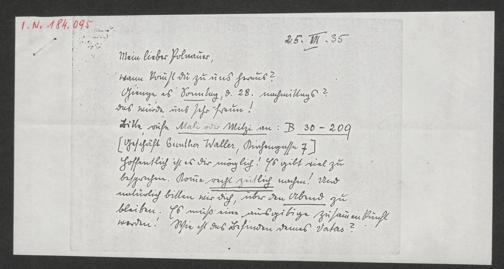 I.N. 184.095
25. VII. 35
Mein lieber Polnauer,
wann kommst du zu uns heraus?
Gienge es Sonntag, d. 28. nachmittags?
das würde uns sehr freuen!
Bitte, rufe Male oder Mitzi an: B 30-209
[Geschäft Gunther Waller, Kirchengasse 7]
hoffentlich ist es dir möglich! Es gibt viel zu
besprechen. Komme recht zeitlich nachm.! Und
natürlich bitten wir dich, über den Abend zu
bleiben. Es muß eine ausgiebige Zusammenkunft
werden! Wie ist das Befinden deines Vaters?